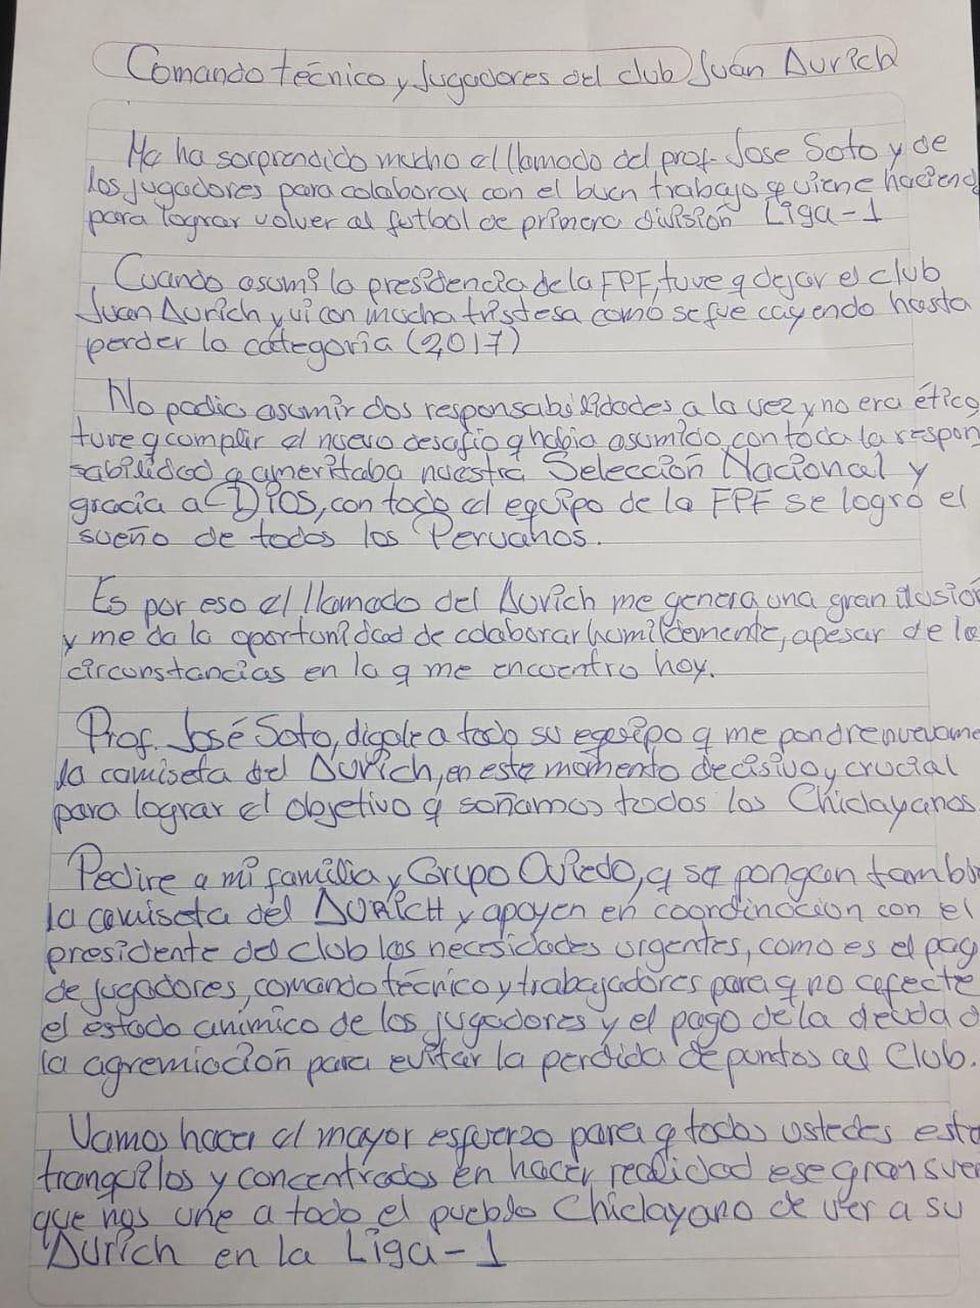 Comando técnico y Jugadores del club Juan Aurich
Me ha sorprendido mucho el llamado del prof. Jose Soto y de
los jugadores para colaborar con el buen trabajo q viene haciend
para lograr volver al futbol de primera división Liga-1
Cuando asumi la presidencia de la FPF, tuve q dejar el club
Juan Aurich y vi con mucha tristesa como se fue cayendo hasta
perder la categoria (2,017)
No podia asumir dos responsabilidades a la vez y no era ético
tuve q cumplir el nuevo desafio q habia asumido, con toda la respon
sabilidad q ameritaba nuestra Selección Nacional y
gracia a DIOS, con todo el equipo de la FPF se logró el
sueño de todos los Peruanos.
Es por eso el llamado del Aurich me genera una gran ilusion
y me da la oportunidad de colaborar humildemente, apesar de la
circunstancias en la q me encuentro hoy.
Prof. José Soto, digale a todo su equipo q me pondre nuevame
la camiseta del Aurich, en este momento decisivo y crucial
para lograr el objetivo q soñamos todos los Chiclayanos
Pedire a mi familia y Grupo Oviedo, q se pongan tambi
la camiseta del AURICH y apoyen en coordinacion con el
presidente del club las necesidades urgentes, como es el pag
de jugadores, comando técnico y trabajadores para q no afecte
el estado animico de los jugadores y el pago de la deuda a
la agremiación para evitar la perdida de puntos al Club.
Vamos hacer el mayor esfuerzo para q todos ustedes esta
tranquilos y concentrados en hacer realidad ese gran sue
que nos une a todo el pueblo Chiclayano de ver a su
Aurich en la Liga-1